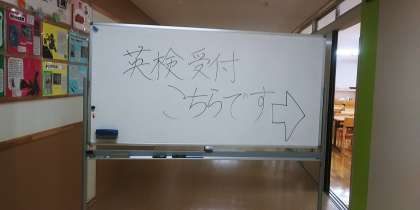 英検受付
こちらです⇨